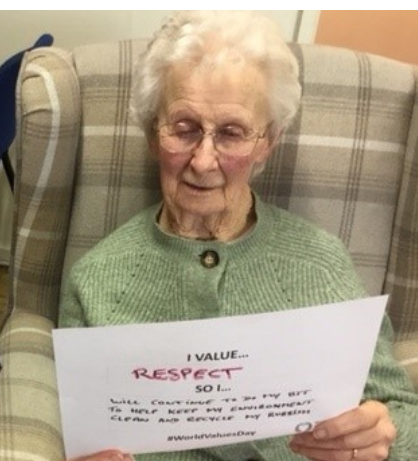 I VALUE...
RESPECT
SO I...
WILL CONTINUE TO DO MY BIT
TO HELP KEEP MY ENVIRONMENT
CLEAN AND RECYCLE MY RUBBISH
#WorldValuesDay